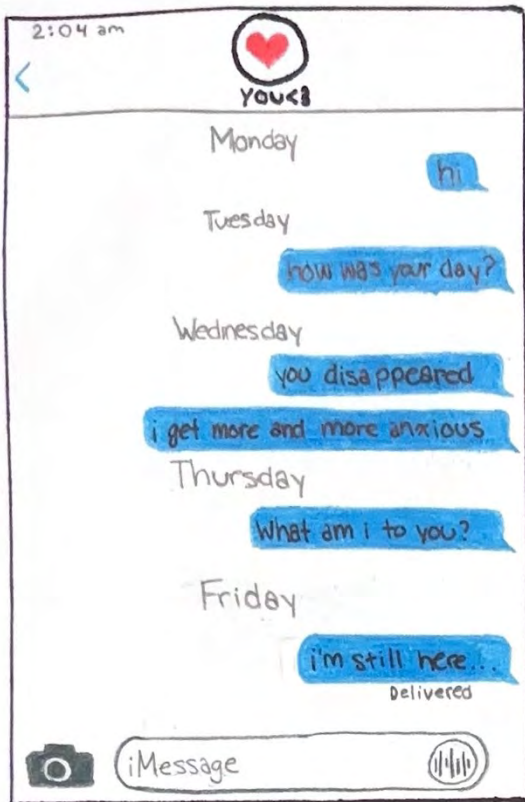 2:04 am
YOU<3
Monday
hi
Tuesday
how was your day?
Wednesday
you disappeared
i get more and more anxious
Thursday
What am i to you?
Friday
i'm still here...
Delivered
iMessage